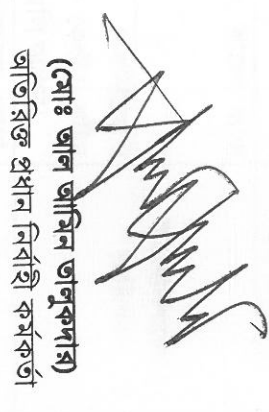 (মোঃ আল আমিন তালুকদার)
অতিরিক্ত প্রধান নির্বাহী কর্মকর্তা